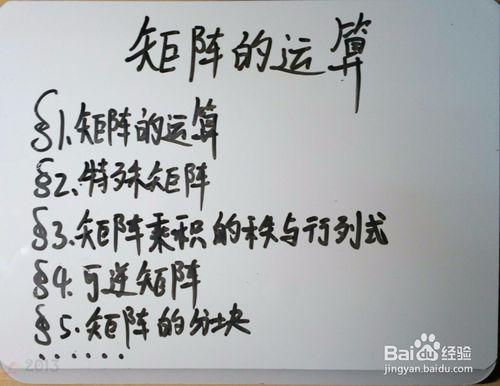 矩阵的运算
§1.矩阵的运算
§2.特殊矩阵
§3.矩阵乘积的秩与行列式
§4.可逆矩阵
§5.矩阵的分块
······
2013
Bai du 经验
jingyan.baidu.com